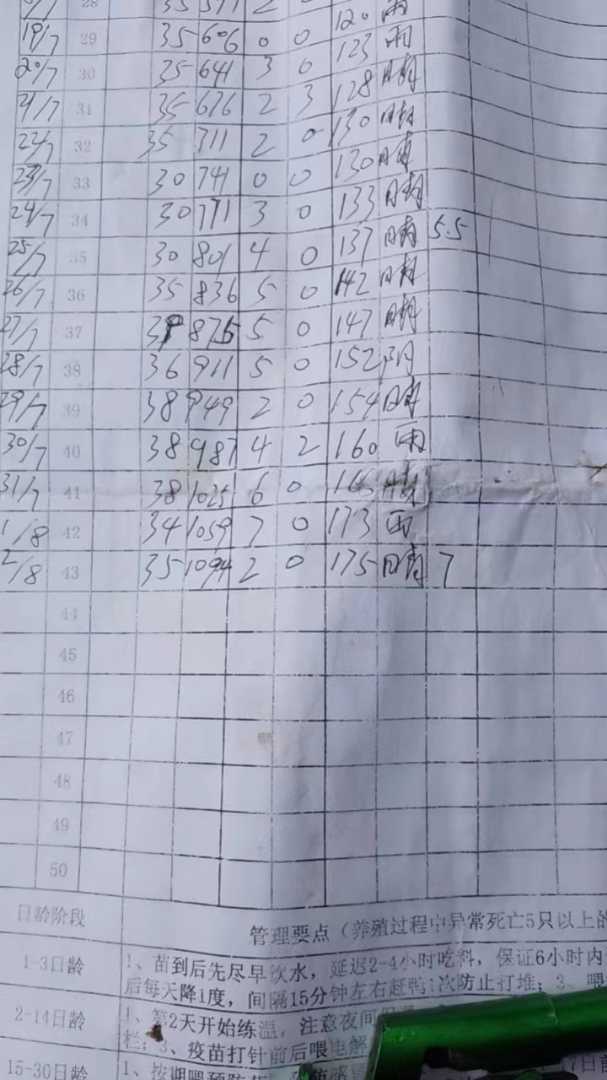 28 35 571 2 0 120 雨
19/7 29 35 606 0 0 123 雨
20/7 30 35 641 3 0 128 晴
21/7 31 35 676 2 3 130 晴
22/7 32 35 711 2 0 130 晴
23/7 33 30 741 0 0 133 晴
24/7 34 30 771 3 0 137 晴 5.5
25/7 35 30 801 4 0 142 晴
26/7 36 35 836 5 0 147 晴
27/7 37 39 875 5 0 152 阴
28/7 38 36 911 5 0 154 晴
29/7 39 38 949 2 0 160 雨
30/7 40 38 987 4 2
31/7 41 38 1025 6 0 晴
1/8 42 34 1059 7 0 173 雨
2/8 43 35 1094 2 0 175 晴 7
44
45
46
47
48
49
50
日龄阶段 管理要点（养殖过程中异常死亡5只以上的
1-3日龄 1、苗到后先尽早饮水，延迟2-4小时吃料，保证6小时内
后每天降1度，间隔15分钟左右赶鸭1次防止打堆；3、喂
2-14日龄 1、第2天开始练温，注意夜间
栏；3、疫苗打针前后喂电解
15-30日龄 1、按期喂预防